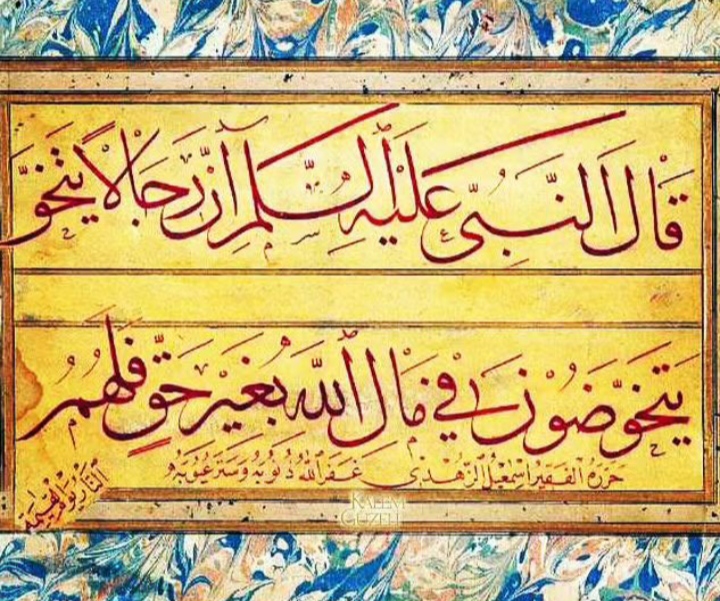 قَالَ النَّبِىُّ عَلَيْهِ السَّلَمُ اِنَّ رِجَالًا يَتَخَوَّ
يَتَخَوَّضُونَ فِى مَالِ اللّٰهِ بِغَيْرِ حَقٍّ فَلَهُمُ
النار يوم القيمة
حرره الفقير اسمعيل الزهدى غفر الله ذنوبه وستر عيوبه
KALEM
GÜZELİ